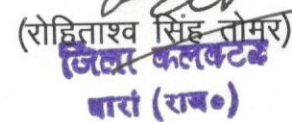 (रोहिताश्व सिंह तोमर)
जिला कलक्टर
बारां (राज०)